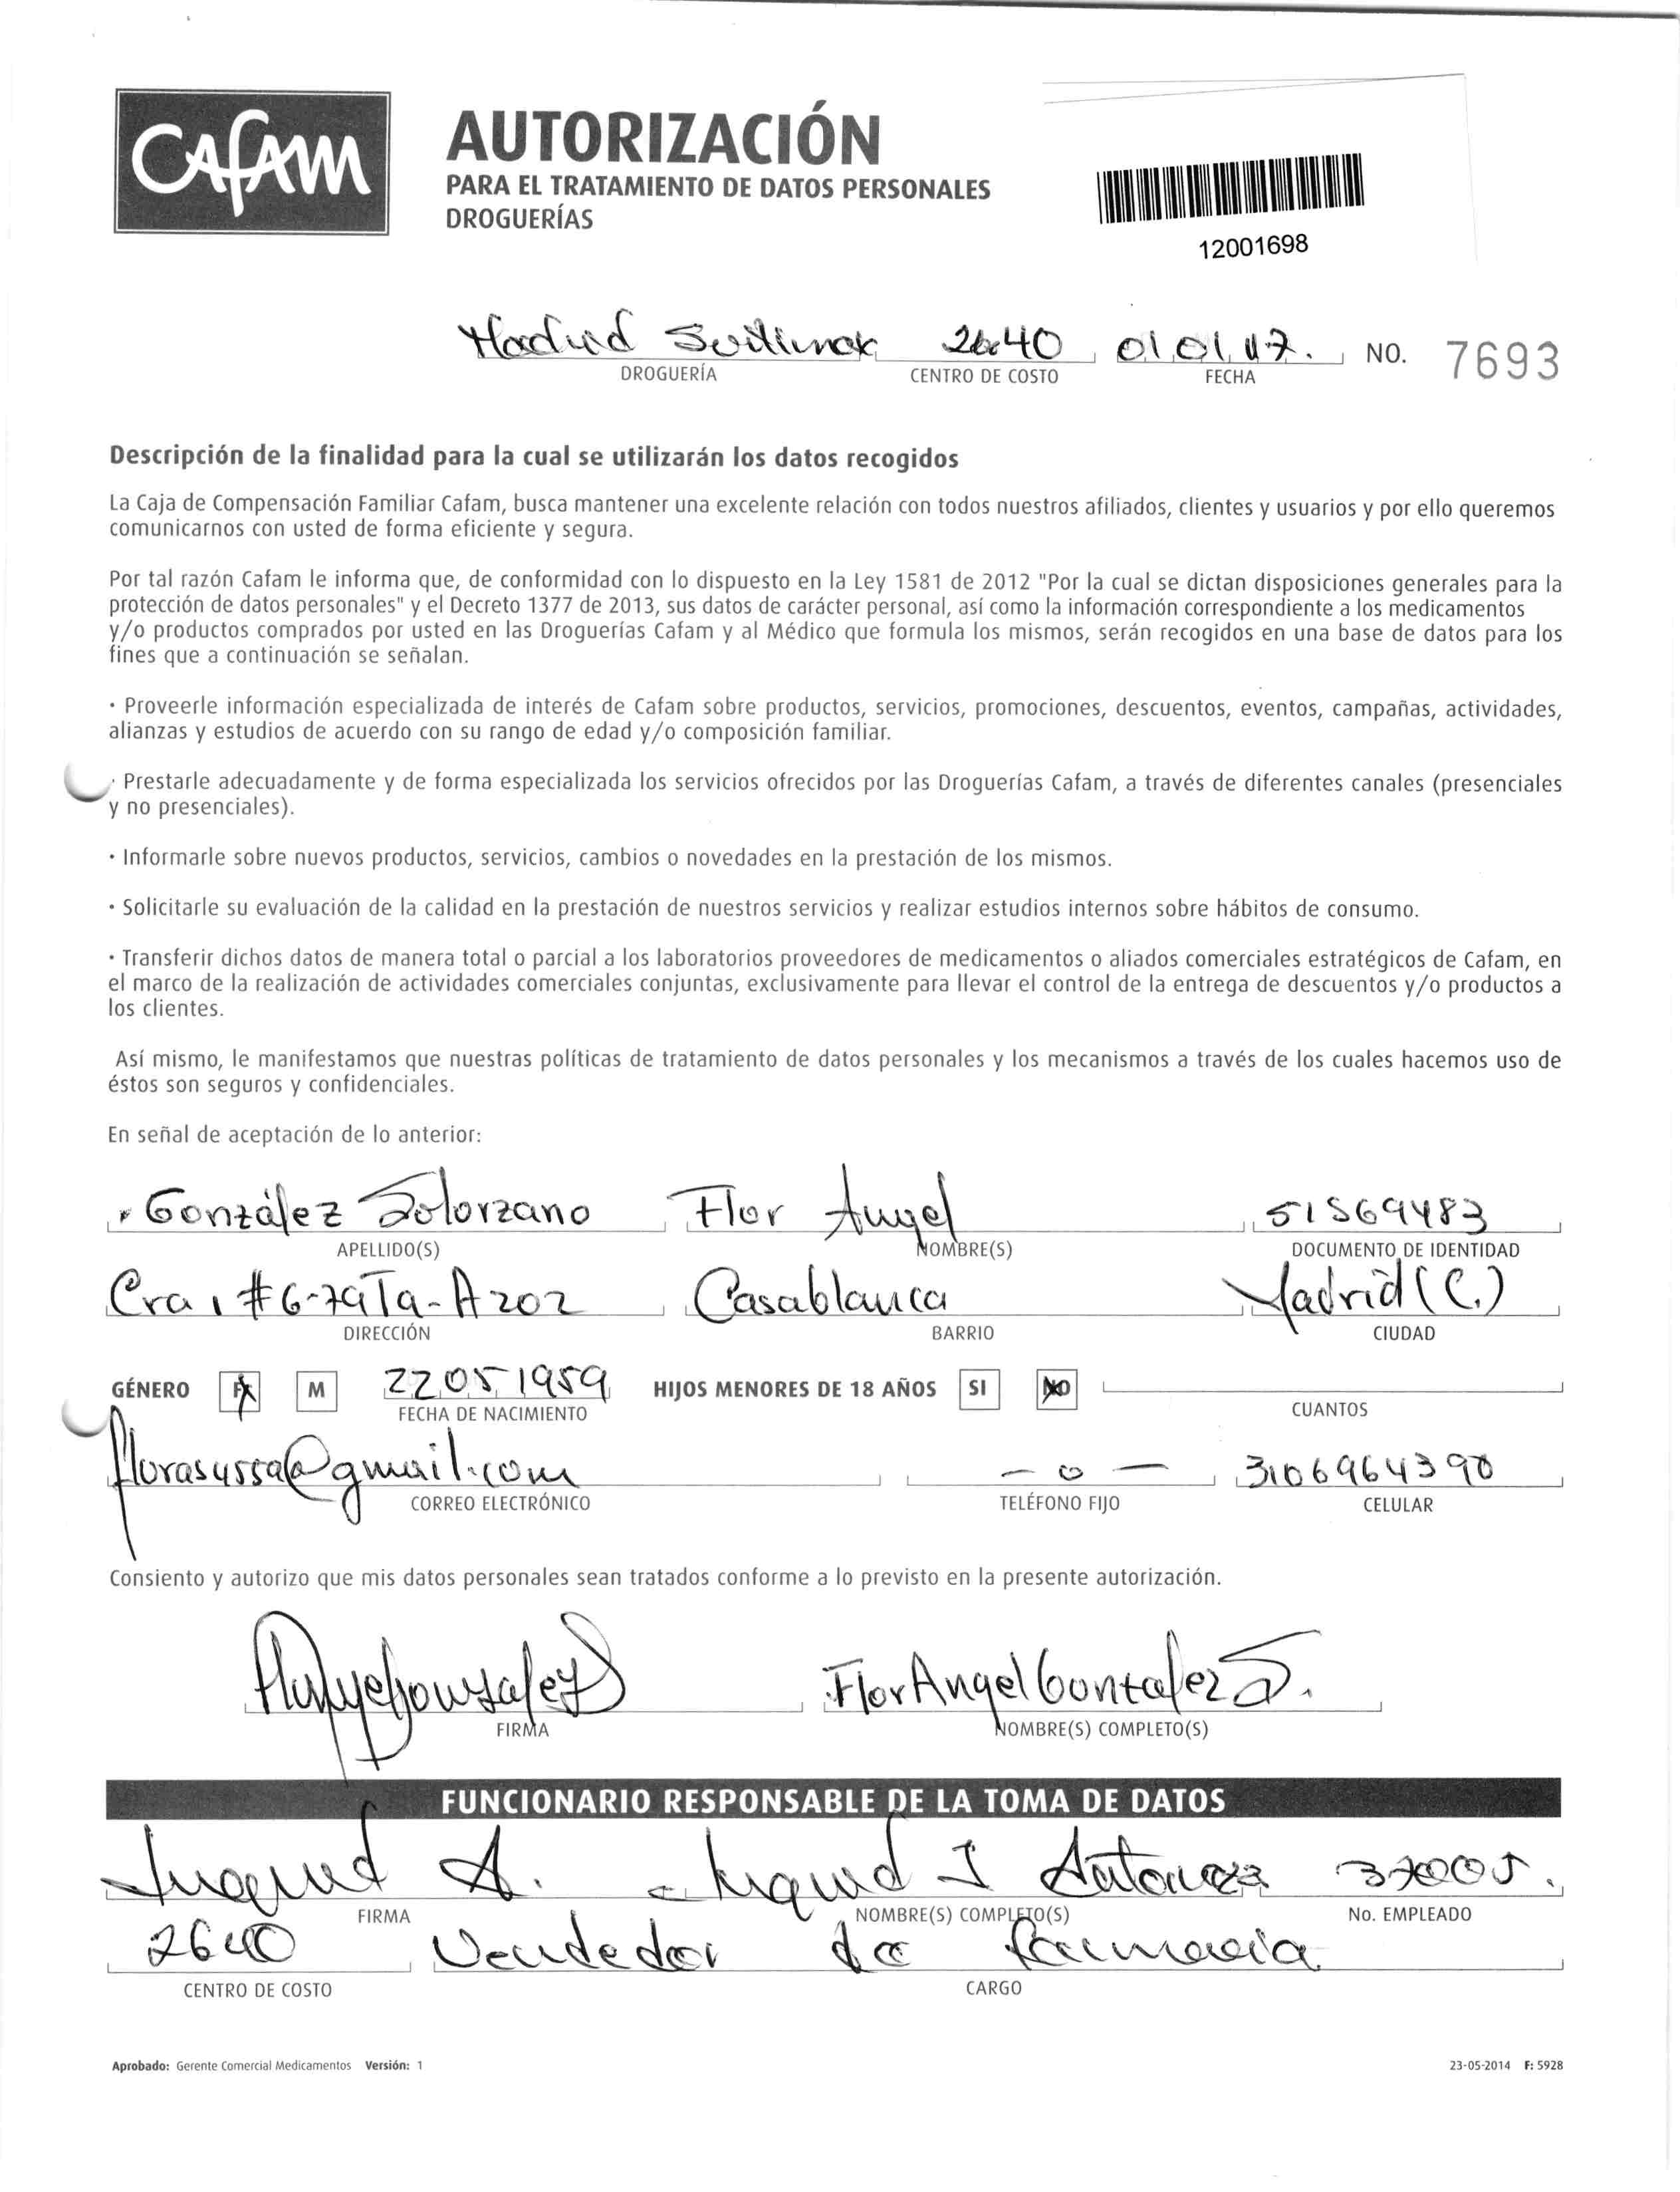 CAFAM
AUTORIZACIÓN
PARA EL TRATAMIENTO DE DATOS PERSONALES
DROGUERÍAS
12001698
Madrid 2640 01 01 17. NO. 7693
DROGUERÍA CENTRO DE COSTO FECHA
Descripción de la finalidad para la cual se utilizarán los datos recogidos
La Caja de Compensación Familiar Cafam, busca mantener una excelente relación con todos nuestros afiliados, clientes y usuarios y por ello queremos
comunicarnos con usted de forma eficiente y segura.
Por tal razón Cafam le informa que, de conformidad con lo dispuesto en la Ley 1581 de 2012 "Por la cual se dictan disposiciones generales para la
protección de datos personales" y el Decreto 1377 de 2013, sus datos de carácter personal, así como la información correspondiente a los medicamentos
y/o productos comprados por usted en las Droguerías Cafam y al Médico que formula los mismos, serán recogidos en una base de datos para los
fines que a continuación se señalan.
· Proveerle información especializada de interés de Cafam sobre productos, servicios, promociones, descuentos, eventos, campañas, actividades,
alianzas y estudios de acuerdo con su rango de edad y/o composición familiar.
· Prestarle adecuadamente y de forma especializada los servicios ofrecidos por las Droguerías Cafam, a través de diferentes canales (presenciales
y no presenciales).
· Informarle sobre nuevos productos, servicios, cambios o novedades en la prestación de los mismos.
· Solicitarle su evaluación de la calidad en la prestación de nuestros servicios y realizar estudios internos sobre hábitos de consumo.
· Transferir dichos datos de manera total o parcial a los laboratorios proveedores de medicamentos o aliados comerciales estratégicos de Cafam, en
el marco de la realización de actividades comerciales conjuntas, exclusivamente para llevar el control de la entrega de descuentos y/o productos a
los clientes.
Así mismo, le manifestamos que nuestras políticas de tratamiento de datos personales y los mecanismos a través de los cuales hacemos uso de
éstos son seguros y confidenciales.
En señal de aceptación de lo anterior:
González Solorzano Flor Angel 51569483
APELLIDO(S) NOMBRE(S) DOCUMENTO DE IDENTIDAD
Cra 1 #6-79 Ta-A202 Casablanca Madrid (C.)
DIRECCIÓN BARRIO CIUDAD
GÉNERO F M 22 05 1959 HIJOS MENORES DE 18 AÑOS SI NO
FECHA DE NACIMIENTO CUANTOS
@gmail.com - 0 - 3106964390
CORREO ELECTRÓNICO TELÉFONO FIJO CELULAR
Consiento y autorizo que mis datos personales sean tratados conforme a lo previsto en la presente autorización.
Flor Angel Gonzalez S.
FIRMA NOMBRE(S) COMPLETO(S)
FUNCIONARIO RESPONSABLE DE LA TOMA DE DATOS
Ingrid A. Ingrid J 37005.
FIRMA NOMBRE(S) COMPLETO(S) No. EMPLEADO
2640 Vendedor de farmacia
CENTRO DE COSTO CARGO
Aprobado: Gerente Comercial Medicamentos Versión: 1 23-05-2014 F: 5928